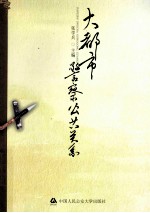 大都市
警察公共关系
主编
中国人民公安大学出版社